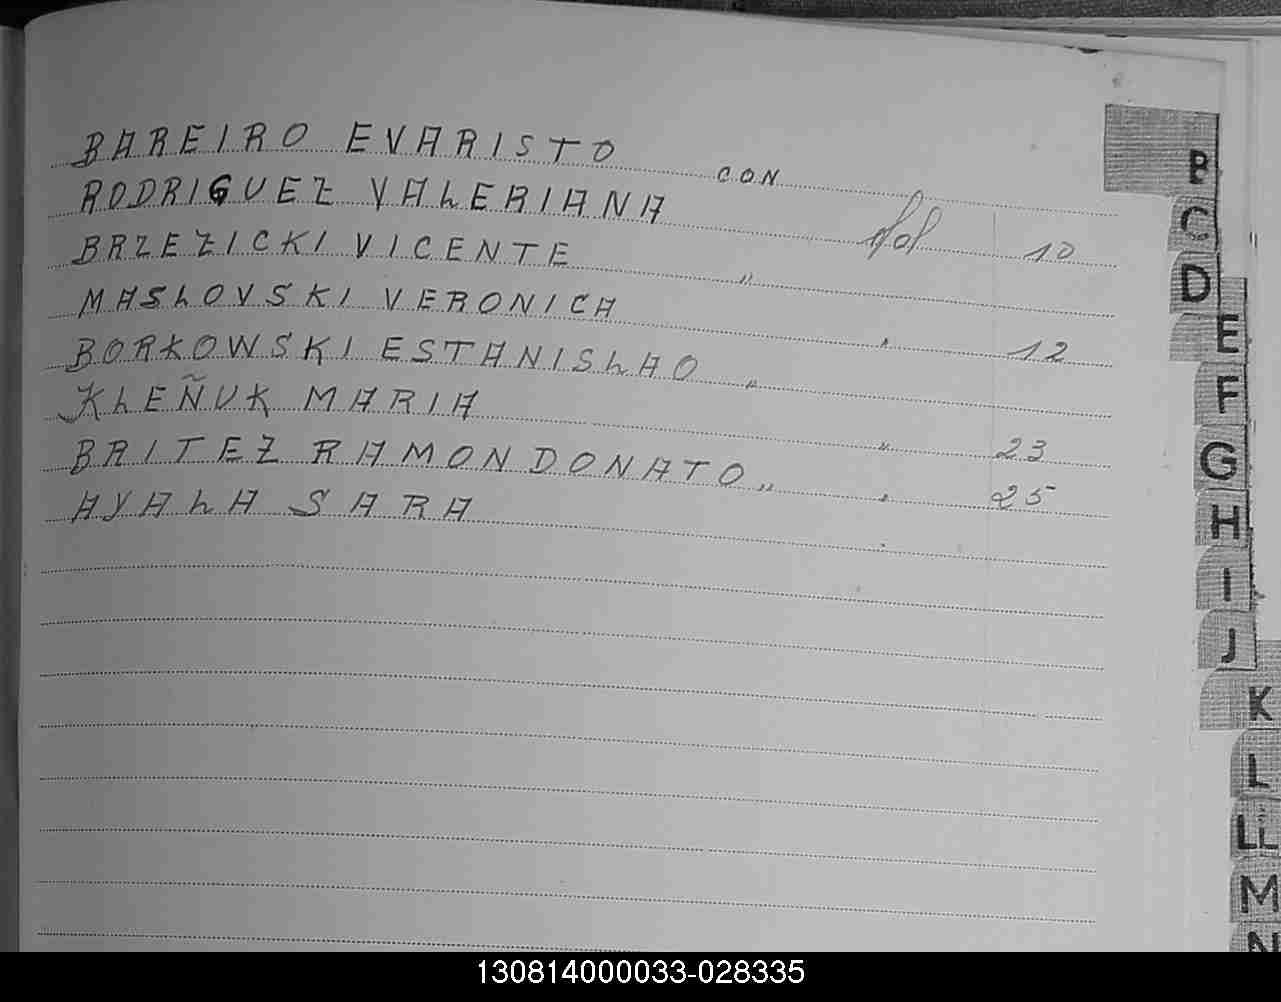 BAREIRO EVARISTO CON
RODRIGUEZ VALERIANA fol 10
BRZEZICKI VICENTE "
MASLOVSKI VERONICA " 12
BORKOWSKI ESTANISLAO "
KLEÑUK MARIA " 23
BRITEZ RAMON DONATO " " 25
AYALA SARA
B
C
D
E
F
G
H
I
J
K
L
LL
M
N
130814000033-028335